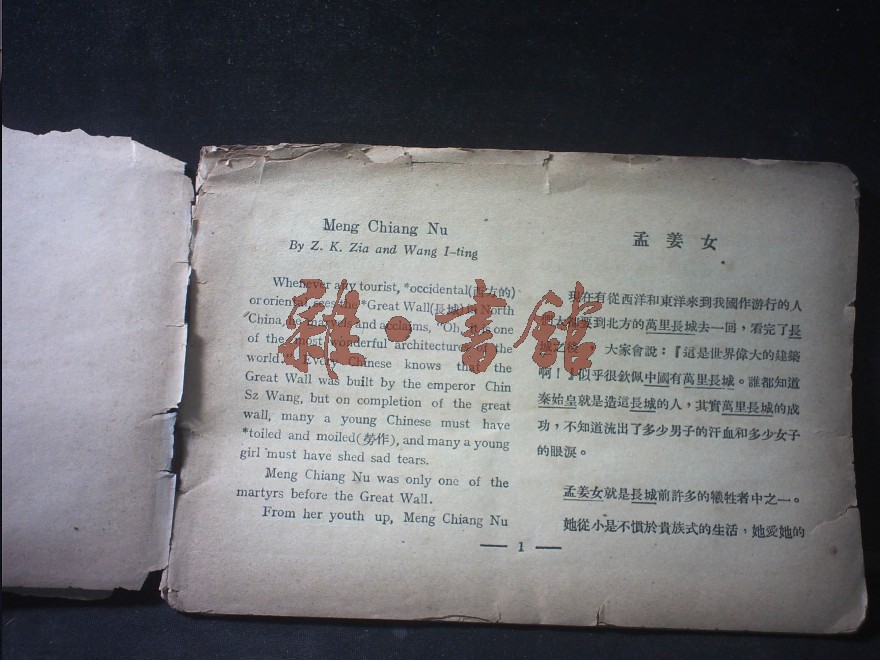 Meng Chiang Nu
By Z. K. Zia and Wang I-ting
Whenever any tourist, *occidental(西方的)
or oriental, sees the *Great Wall(長城) in North
China, he marvels and acclaims, "Oh, it is one
of the most wonderful architectures of the
world." Every Chinese knows that the
Great Wall was built by the emperor Chin
Sz Wang, but on completion of the great
wall, many a young Chinese must have
*toiled and moiled(勞作), and many a young
girl must have shed sad tears.
Meng Chiang Nu was only one of the
martyrs before the Great Wall.
From her youth up, Meng Chiang Nu
孟姜女
現在有從西洋和東洋來到我國作游行的人
要到北方的萬里長城去一回，看完了長
城之後 大家會說：『這是世界偉大的建築
啊！』似乎很欽佩中國有萬里長城。誰都知道
秦始皇就是造這長城的人，其實萬里長城的成
功，不知道流出了多少男子的汗血和多少女子
的眼淚。
孟姜女就是長城前許多的犧牲者中之一。
她從小是不慣於貴族式的生活，她愛她的
— 1 —
雜·書館